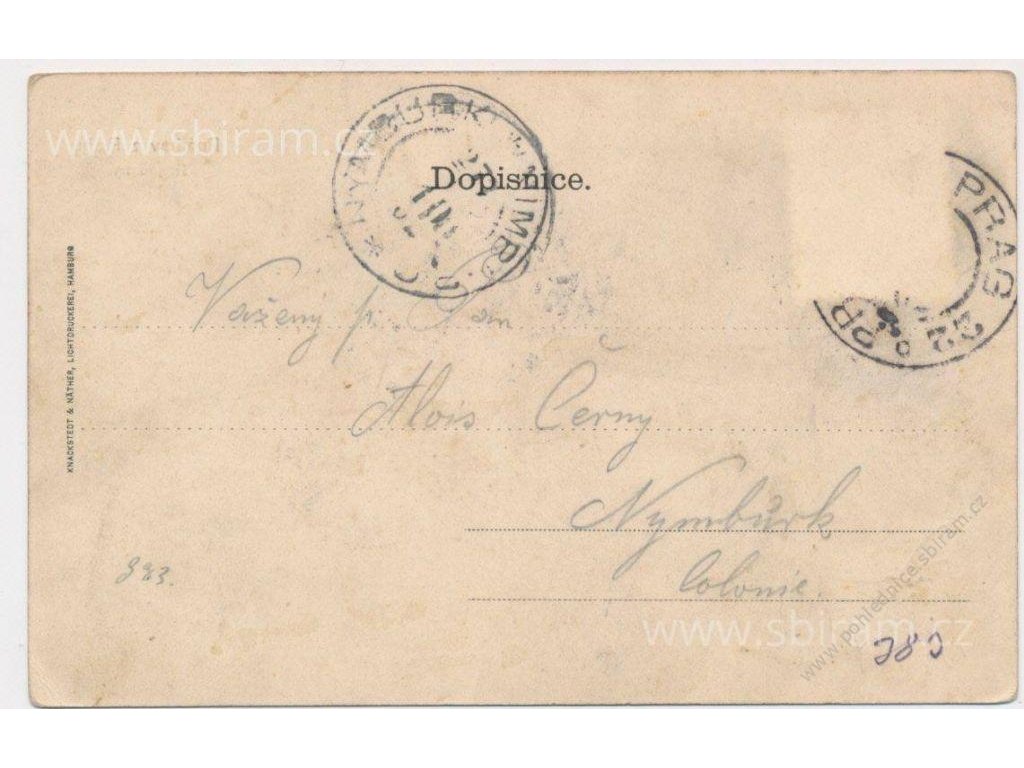 www.sbiram.cz
* NYMBURK * NIMBURG
Dopisnice.
PRAG 22
KNACKSTEDT & NÄTHER, LICHTDRUCKEREI, HAMBURG
Vážený p. Pan
Alois Černy
Nymburk
Colonie.
983.
www.pohlednice.sbiram.cz
www.sbiram.cz